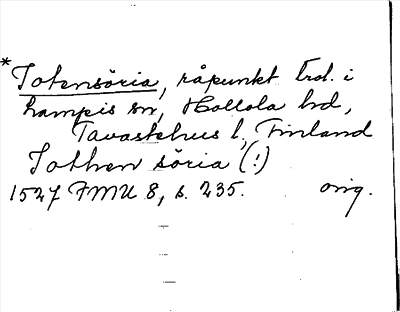 * Totensöria, råpunkt trol. i
Lampis sn, Hollola hd,
Tavastehus l, Finland
Tothen söria (!)
1527 FMU 8, s. 235. orig.